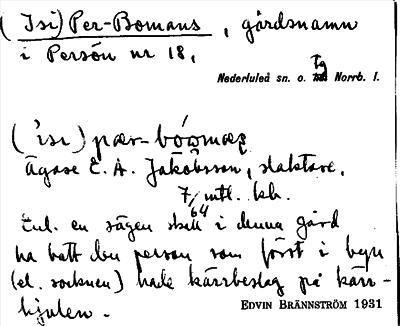 (Isi) Per-Bomans, gårdsnamn
i Persön nr 18.
Nederluleå sn. o. tg Norrb. l.
('isi) pær-
Ägare E. A. Jakobsson, slaktare,
7/64 mtl. kb.
Enl. en sägen skall i denna gård
ha bott den person som först i byn
(el. socknen) hade kärrbeslag på kärr-
hjulen.
EDVIN BRÄNNSTRÖM 1931